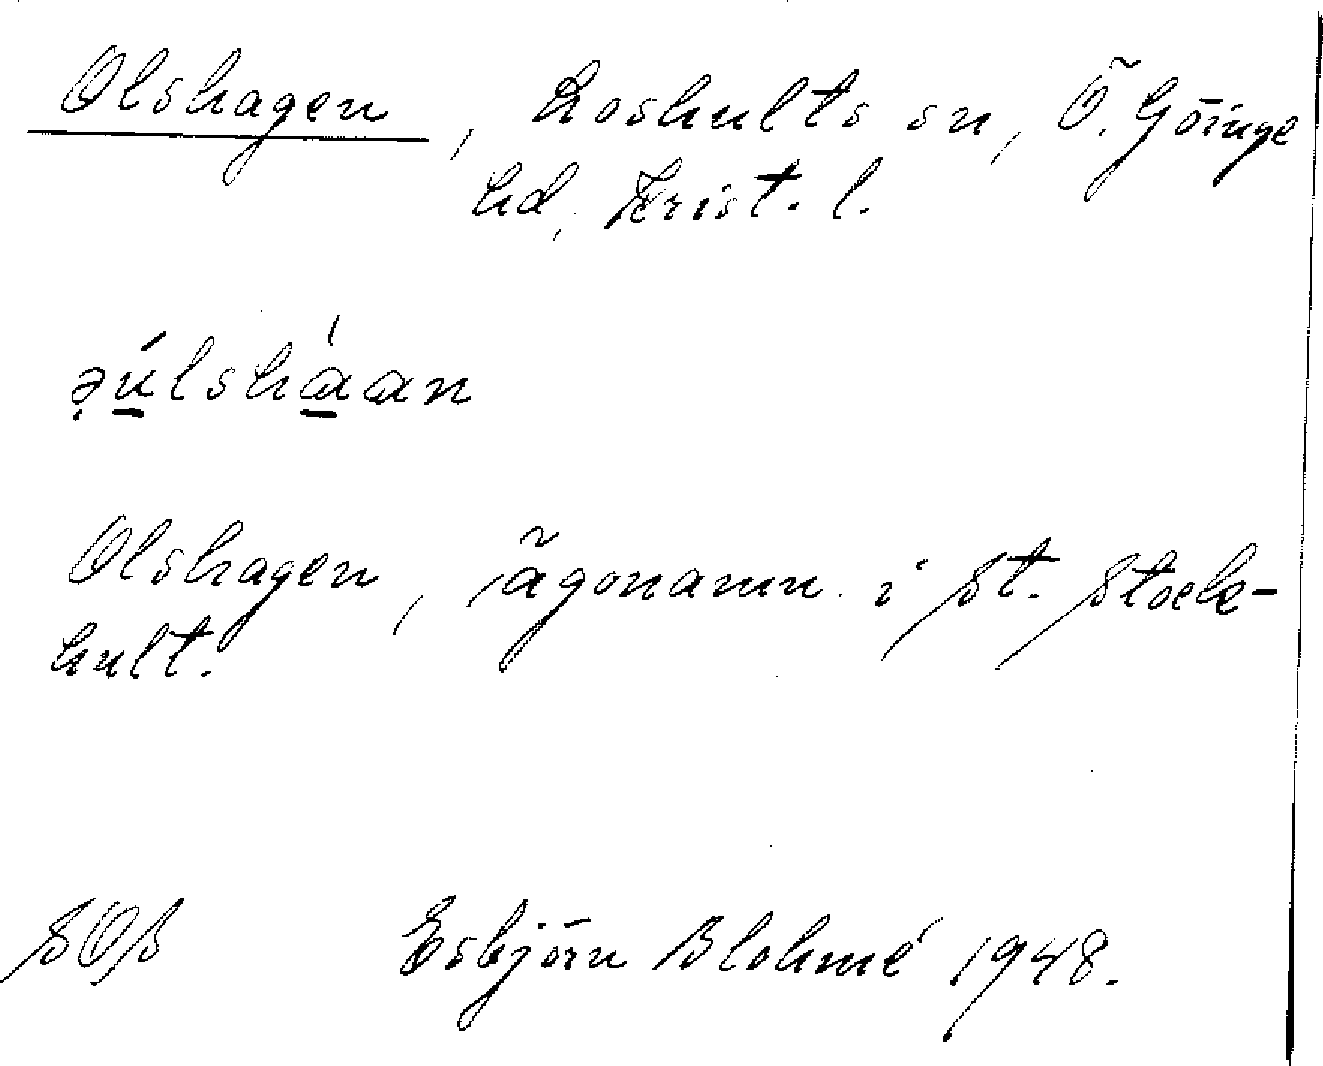 Olshagen, Loshults sn, Ö. Göinge
hd, Krist. l.
ə̣úlshá̱an
Olshagen, ägonamn i St. Stock-
hult.
SOS Esbjörn Blohmé 1948.